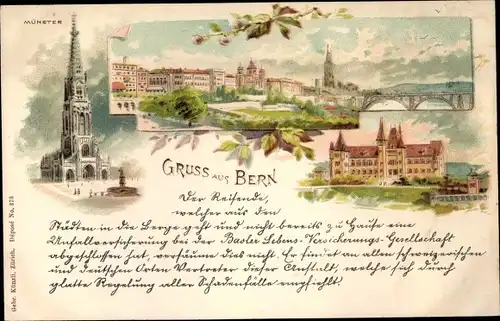 MÜNSTER
GRUSS AUS BERN
Der Reisende,
welcher aus den
Städten in die Berge geht und nicht bereits zu Hause eine
Unfallversicherung bei der Basler Lebens-Versicherungs-Gesellschaft
abgeschlossen hat, versäume dies nicht. Er findet an allen schweizerischen
und deutschen Orten Vertreter dieser Anstalt, welche sich durch
glatte Regelung aller Schadenfälle empfiehlt!
Gebr. Künzli, Zürich. Déposé No. 373